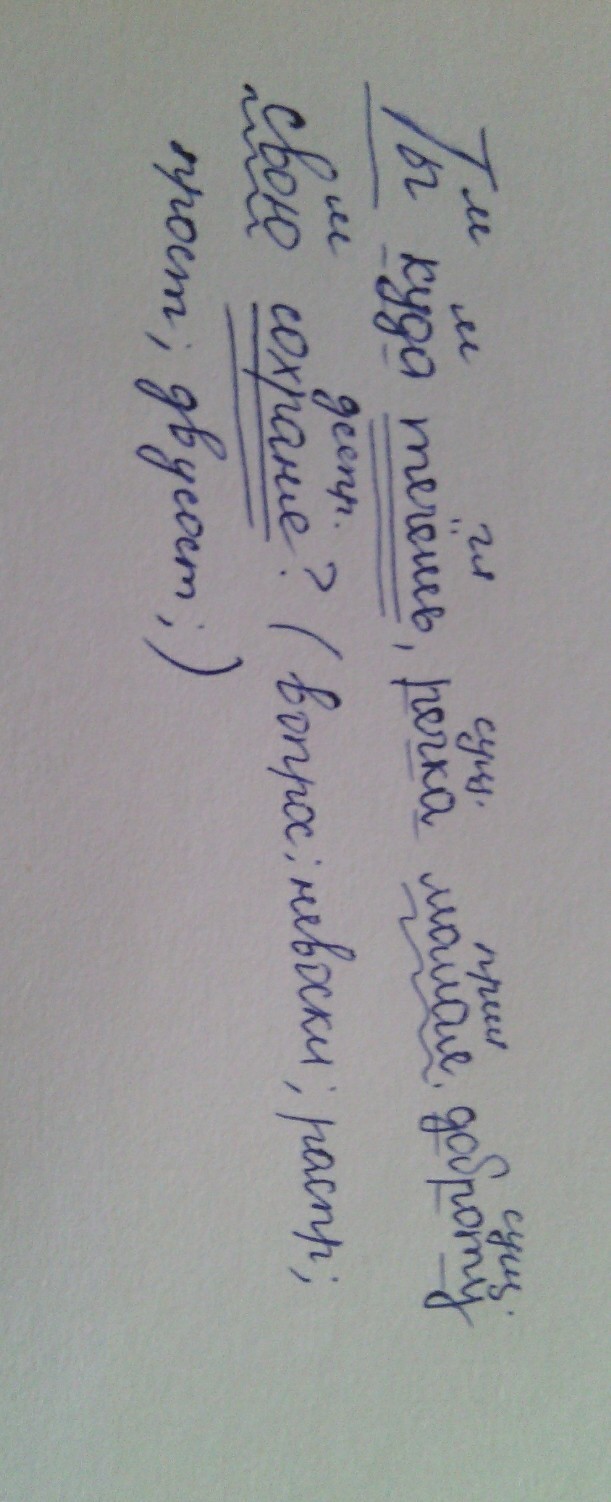 м м гл сущ. прил сущ.
Ты куда течёшь, речка малая, доброту
м деепр.
свою сохраняе? (вопрос; невоскл; распр;
прост; двусост;)